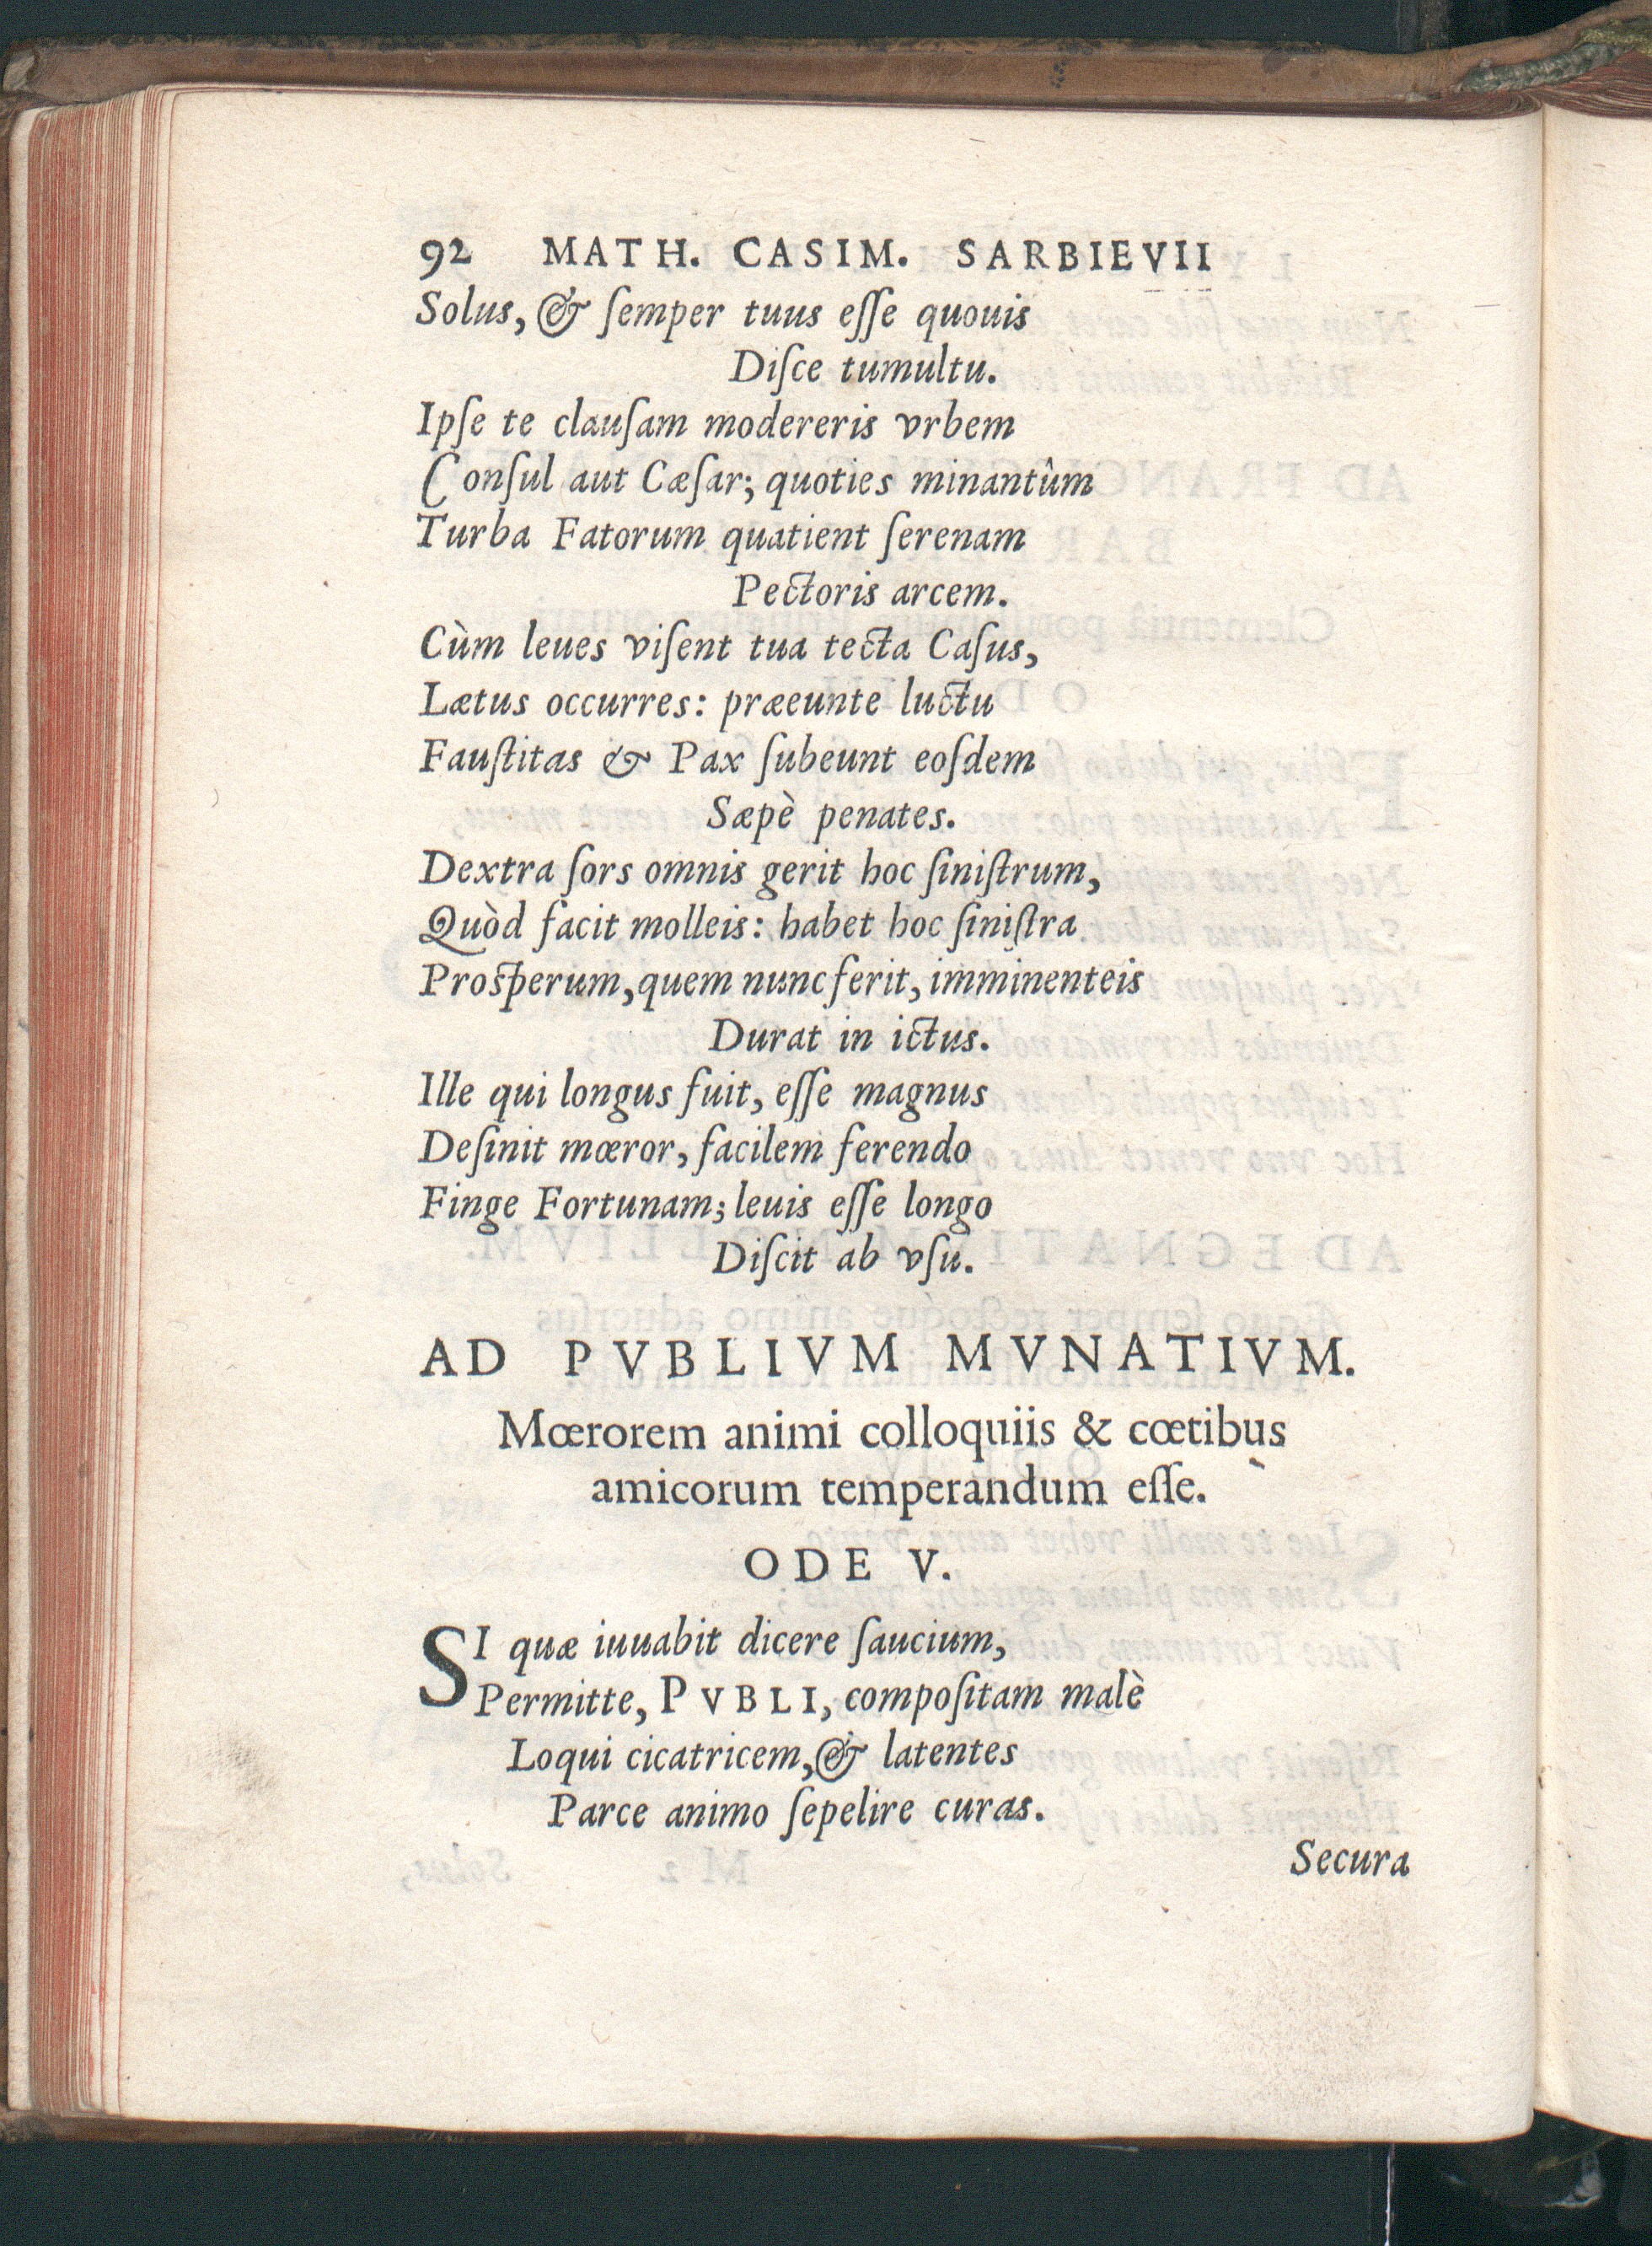 92 MATH. CASIM. SARBIEVII
Solus, & ſemper tuus eſſe quouis
Diſce tumultu.
Ipſe te clauſam modereris vrbem
Conſul aut Cæſar; quoties minantûm
Turba Fatorum quatient ſerenam
Pectoris arcem.
Cùm leues viſent tua tecta Caſus,
Lætus occurres: præeunte luctu
Fauſtitas & Pax ſubeunt eoſdem
Sæpè penates.
Dextra ſors omnis gerit hoc ſiniſtrum,
Quòd facit molleis: habet hoc ſiniſtra
Proſperum, quem nunc ferit, imminenteis
Durat in ictus.
Ille qui longus fuit, eſſe magnus
Deſinit mœror, facilem ferendo
Finge Fortunam; leuis eſſe longo
Diſcit ab vſu.
AD PVBLIVM MVNATIVM.
Mœrorem animi colloquiis & cœtibus
amicorum temperandum eſſe.
ODE V.
SI quæ iuuabit dicere ſaucium,
Permitte, PVBLI, compoſitam malè
Loqui cicatricem, & latentes
Parce animo ſepelire curas.
Secura